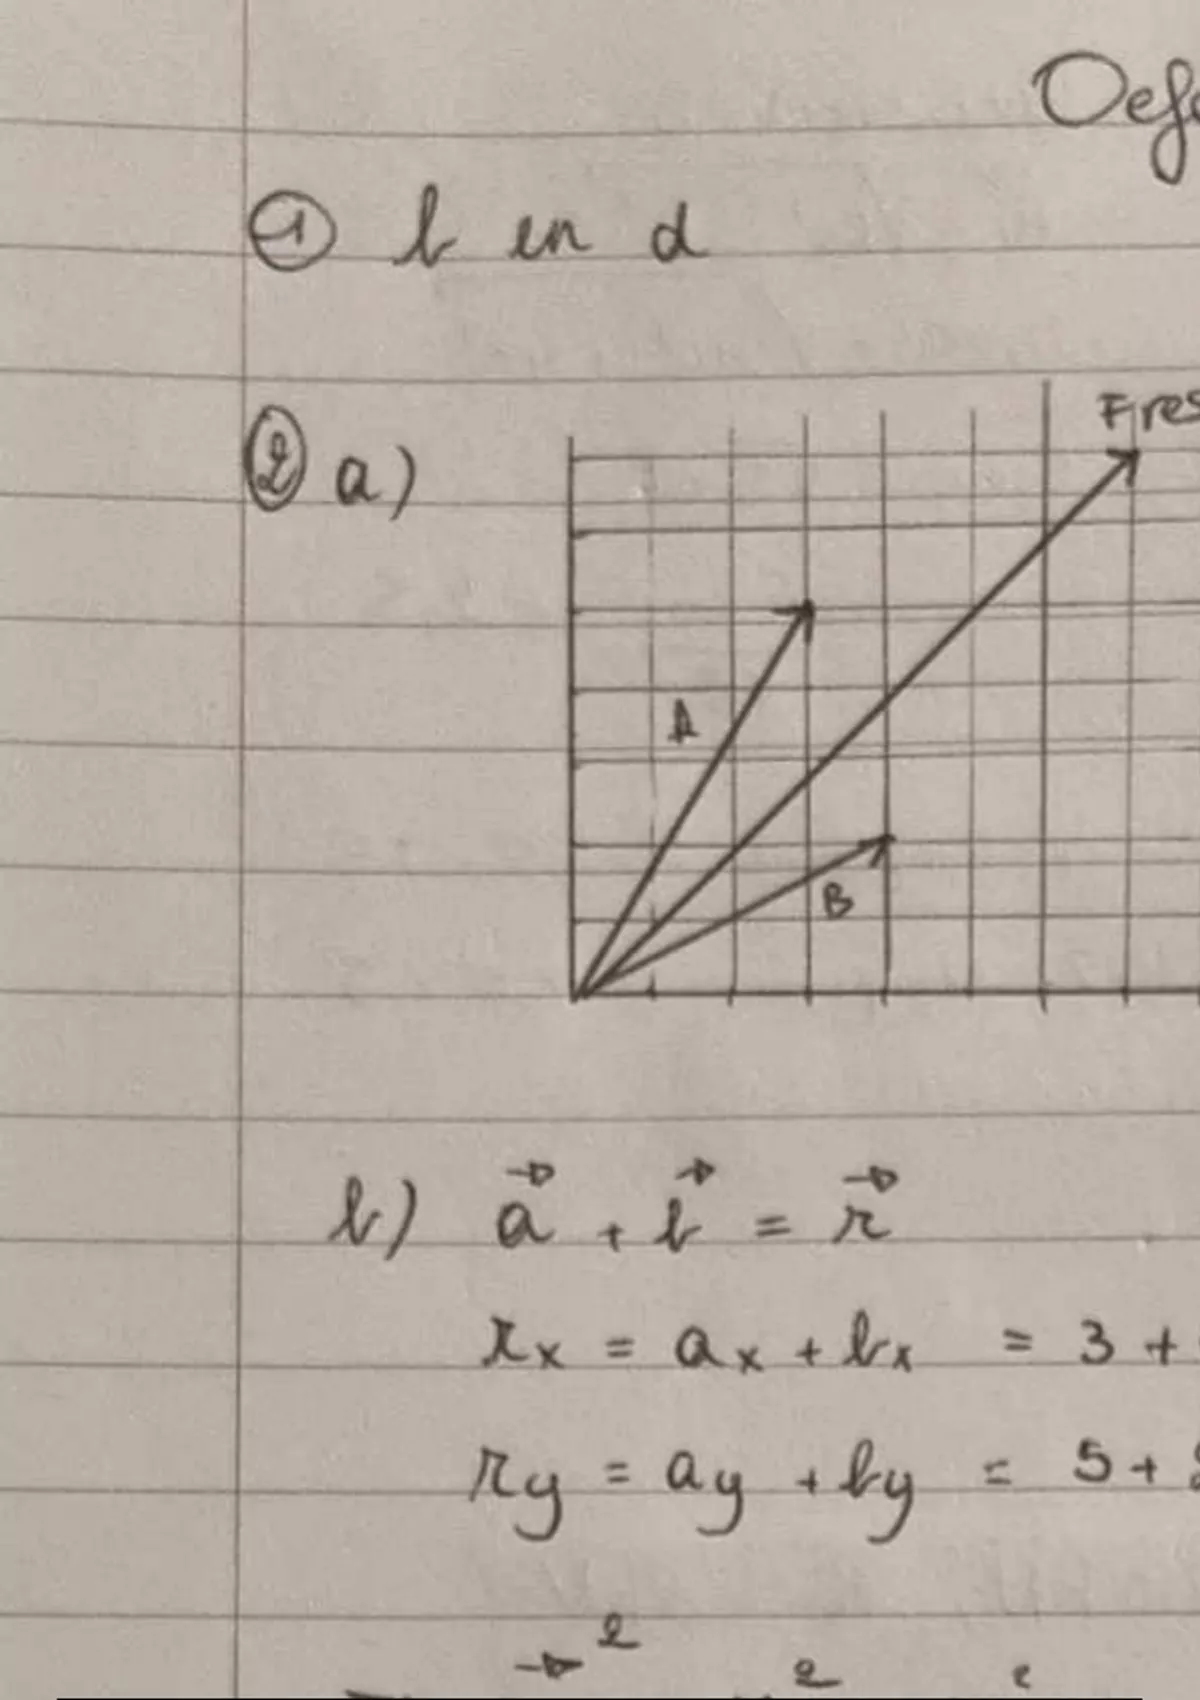 Oef
① b en d
② a)
Fres
A
B
b) a⃗ + b⃗ = r⃗
rx = ax + bx = 3 +
ry = ay + by = 5 +
2
2